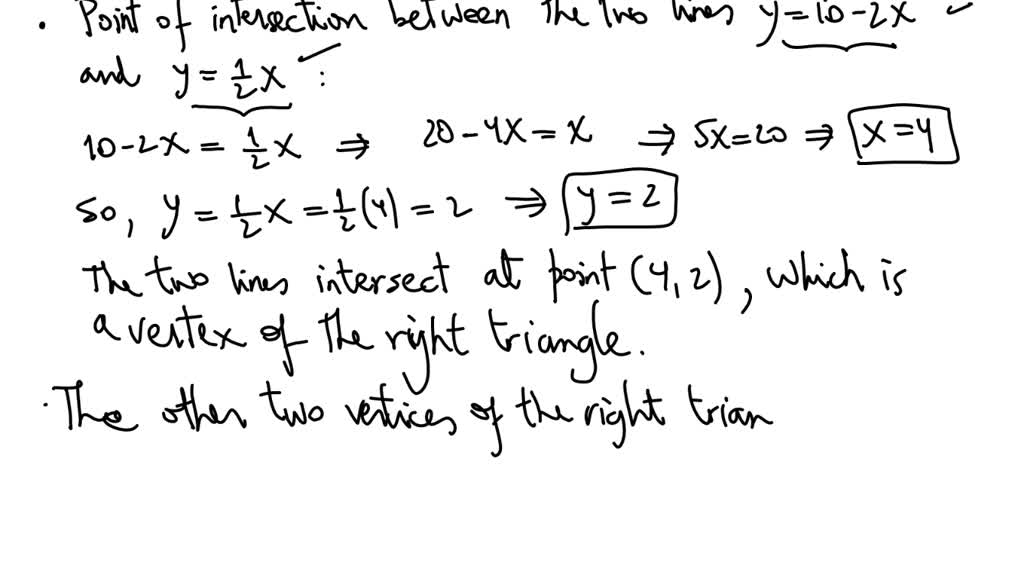 · Point of intersection between the two lines y=10-2x ✓
and y = 1/2 x :
10-2x = 1/2 x ⇒ 20-4x = x ⇒ 5x=20 ⇒ x=4
So, y = 1/2 x = 1/2 (4) = 2 ⇒ y = 2
The two lines intersect at point (4,2), which is
a vertex of the right triangle.
· The other two vertices of the right trian